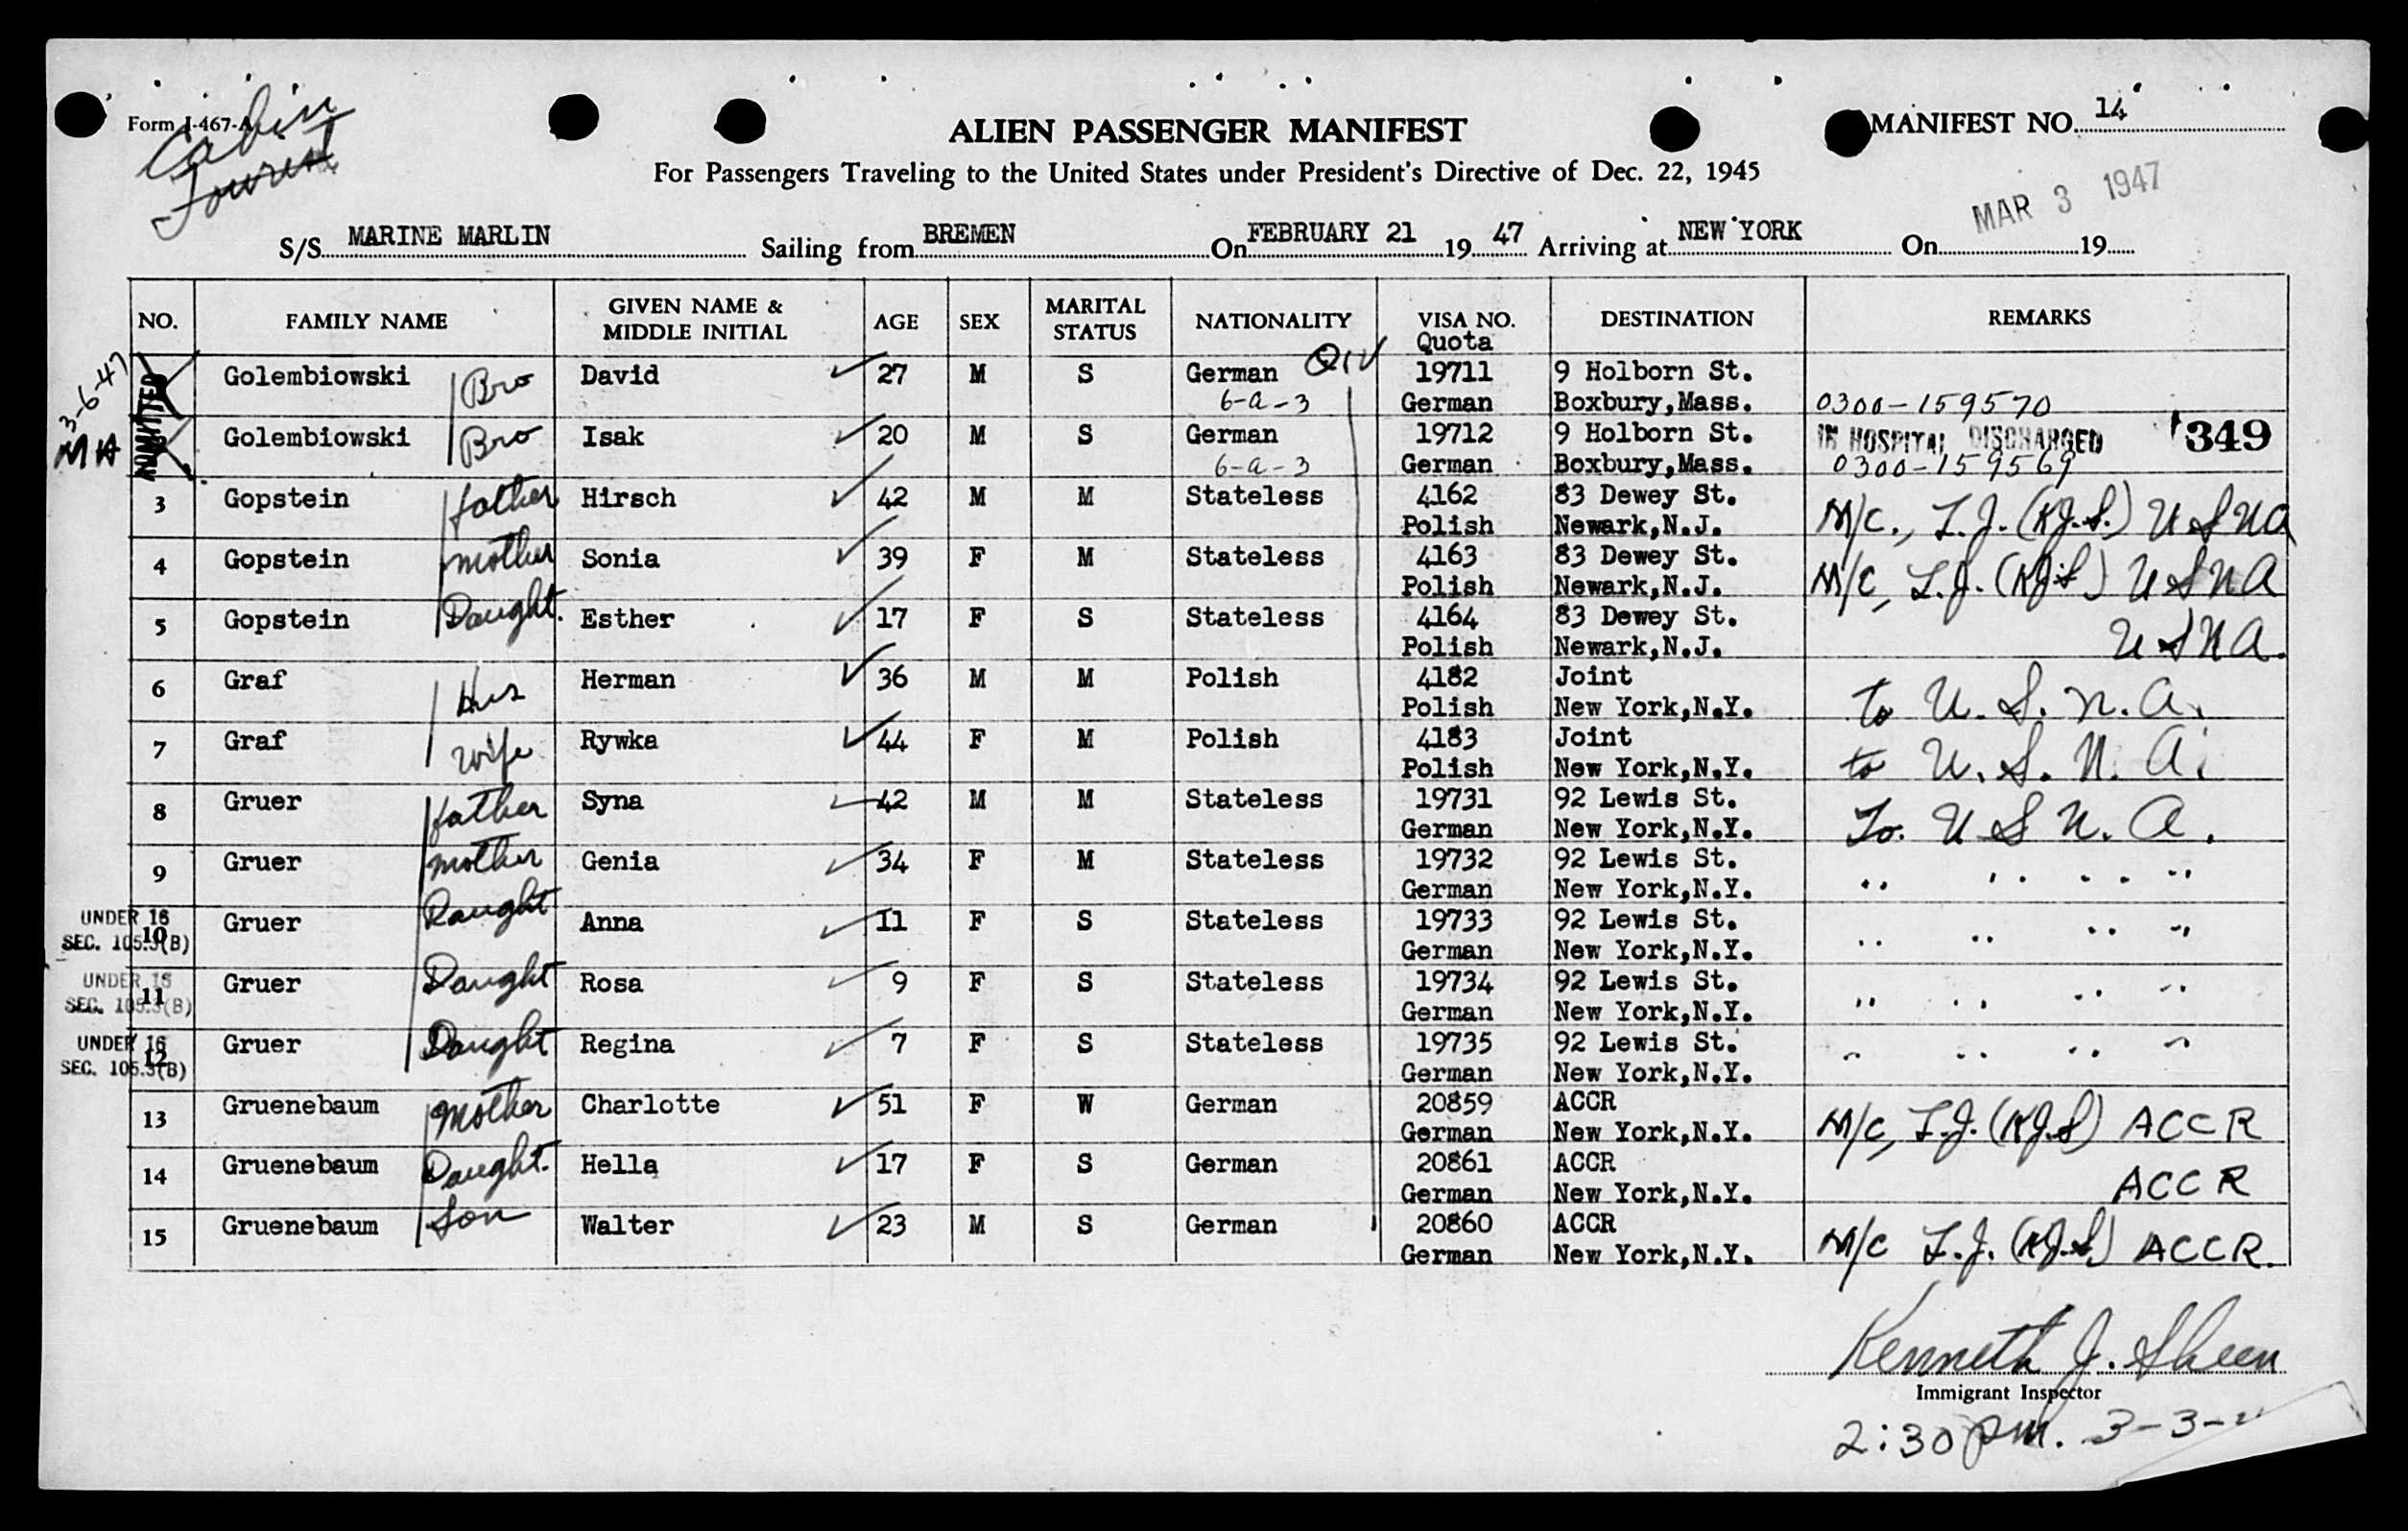 Form I-467-A
Cabin
Tourist
ALIEN PASSENGER MANIFEST
MANIFEST NO. 14
For Passengers Traveling to the United States under President's Directive of Dec. 22, 1945
MAR 3 1947
S/S MARINE MARLIN Sailing from BREMEN On FEBRUARY 21 19 47 Arriving at NEW YORK On 19
NO. FAMILY NAME GIVEN NAME & MIDDLE INITIAL AGE SEX MARITAL STATUS NATIONALITY VISA NO. Quota DESTINATION REMARKS
3-6-47
ADMITTED
QIV
Golembiowski Bro David 27 M S German 19711 9 Holborn St.
6-a-3 German Boxbury,Mass. 0300-159570
MH Golembiowski Bro Isak 20 M S German 19712 9 Holborn St. IN HOSPITAL DISCHARGED 349
6-a-3 German Boxbury,Mass. 0300-159569
3 Gopstein father Hirsch 42 M M Stateless 4162 83 Dewey St.
Polish Newark,N.J. M/C., L.J. (KJ.S.) USNA
4 Gopstein mother Sonia 39 F M Stateless 4163 83 Dewey St.
Polish Newark,N.J. M/C, L.J. (KJS) USNA
5 Gopstein Daught. Esther 17 F S Stateless 4164 83 Dewey St.
Polish Newark,N.J. USNA.
6 Graf Hus Herman 36 M M Polish 4182 Joint
Polish New York,N.Y. to U.S.N.A.
7 Graf Wife Rywka 44 F M Polish 4183 Joint
Polish New York,N.Y. to U.S.N.A.
8 Gruer father Syna 42 M M Stateless 19731 92 Lewis St.
German New York,N.Y. To. U S N. A.
9 Gruer mother Genia 34 F M Stateless 19732 92 Lewis St.
German New York,N.Y. " " " "
UNDER 16
SEC. 105.3(B)
10 Gruer Daught Anna 11 F S Stateless 19733 92 Lewis St.
German New York,N.Y. " " " "
UNDER 16
SEC. 105.3(B)
11 Gruer Daught Rosa 9 F S Stateless 19734 92 Lewis St.
German New York,N.Y. " " " "
UNDER 16
SEC. 105.3(B)
12 Gruer Daught Regina 7 F S Stateless 19735 92 Lewis St.
German New York,N.Y. " " " "
13 Gruenebaum Mother Charlotte 51 F W German 20859 ACCR
German New York,N.Y. M/C, L.J. (KJ.S) ACCR
14 Gruenebaum Daught. Hella 17 F S German 20861 ACCR
German New York,N.Y. ACCR
15 Gruenebaum Son Walter 23 M S German 20860 ACCR
German New York,N.Y. M/C L.J. (KJ.S) ACCR.
Kenneth J. Sheen
Immigrant Inspector
2:30 pm. 3-3-